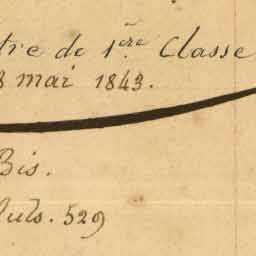 tre de 1ère Classe
8 mai 1843.
Bis.
529